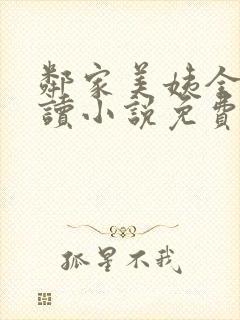 鄰家美姨全
讀小說免費
孤星不我